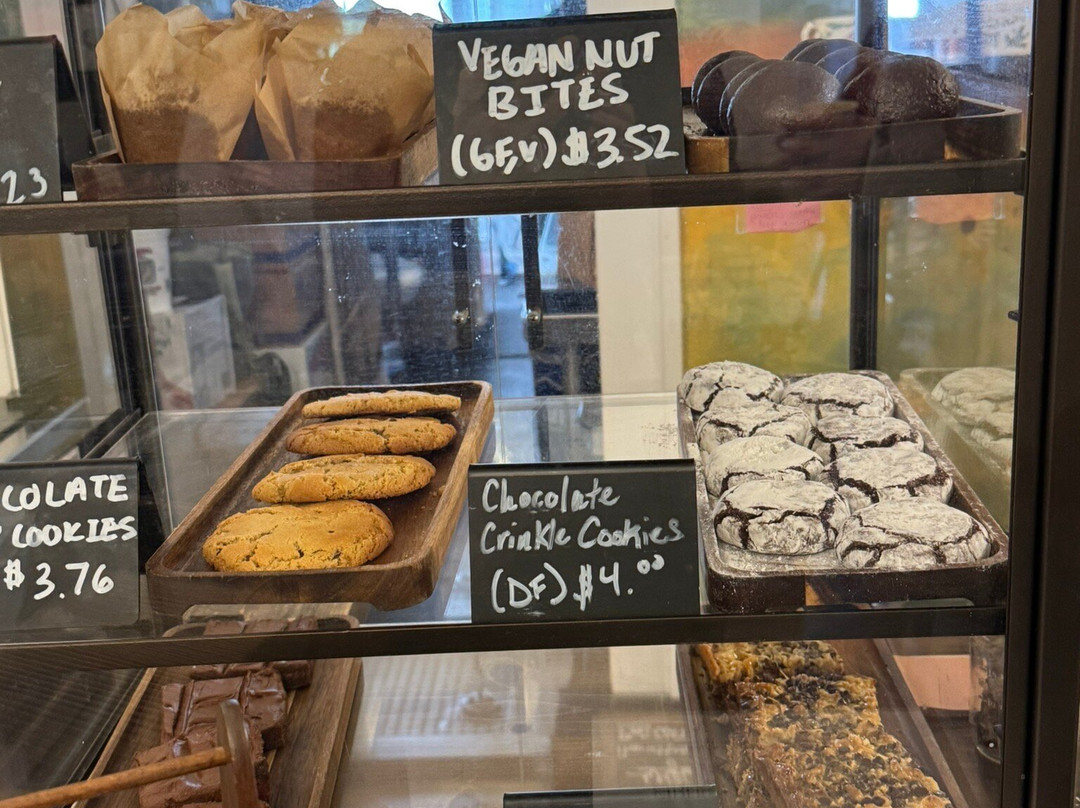 VEGAN NUT
BITES
(GF,V) $3.52
23
COLATE
COOKIES
$3.76
Chocolate
Crinkle Cookies
(DF) $4.00